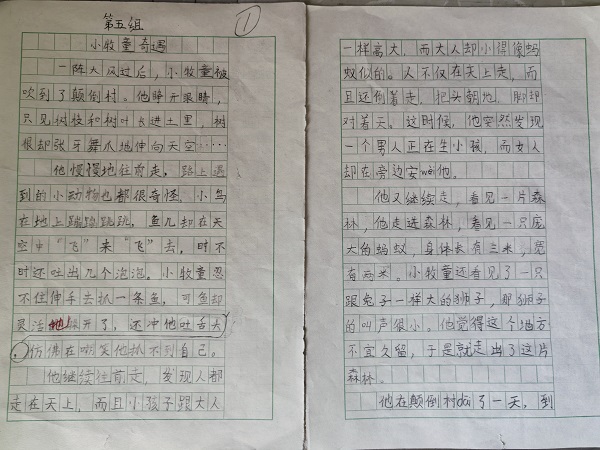 第五组
①
小牧童奇遇
一阵大风过后，小牧童被
吹到了颠倒村。他睁开眼睛，
只见树枝和树叶长进土里，树
根却张牙舞爪地伸向天空……
他慢慢地往前走，路上遇
到的小动物也都很奇怪。小鸟
在地上蹦蹦跳跳，鱼儿却在天
空中“飞”来“飞”去，时不
时还吐出几个泡泡。小牧童忍
不住伸手去抓一条鱼，可鱼却
灵活地开了，还冲他吐舌头
，仿佛在嘲笑他抓不到自己。
他继续往前走，发现人都
走在天上，而且小孩子跟大人
一样高大，而大人却小得像蚂
蚁似的。人不仅在天上走，而
且还倒着走，把头朝地，脚却
对着天。这时候，他突然发现
一个男人正在生小孩，而女人
却在旁边安wèi他。
他又继续走，看见一片森
林，他走进森林，看见一只庞
大的蚂蚁，身体长有三米，宽
有两米。小牧童还看见了一只
跟兔子一样大的狮子，那狮子
的叫声很小。他觉得这个地方
不宜久留，于是就走出了这片
森林。
他在颠倒村dāi了一天，到